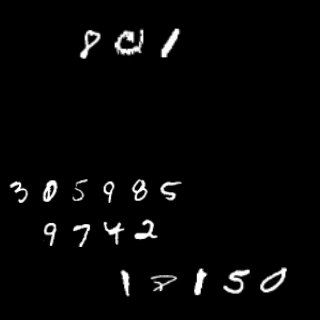 801
305985
9742
18150